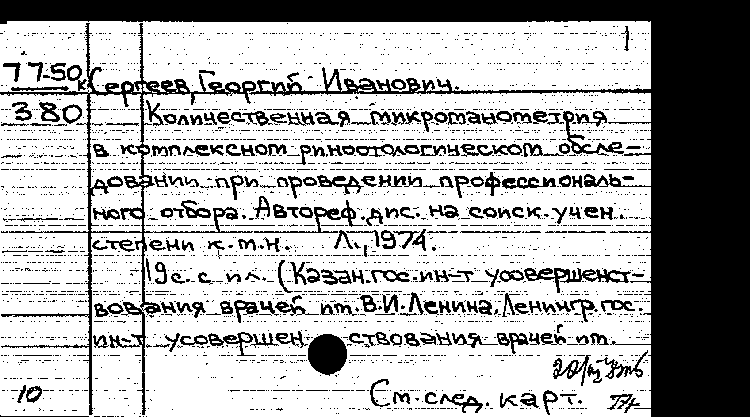 1
77-50к Сергеев, Георгий Иванович.
380 Количественная микроманометрия
в комплексном риноотологическом обсле-
довании при проведении профессиональ-
ного отбора. Автореф. дис. на соиск. учен.
степени к.м.н. Л., 1974.
19с. с ил. (Казан. гос. ин-т усовершенст-
вования врачей им. В.И.Ленина. Ленингр. гос.
ин-т усовершенствования врачей им.
10 См. след. карт.